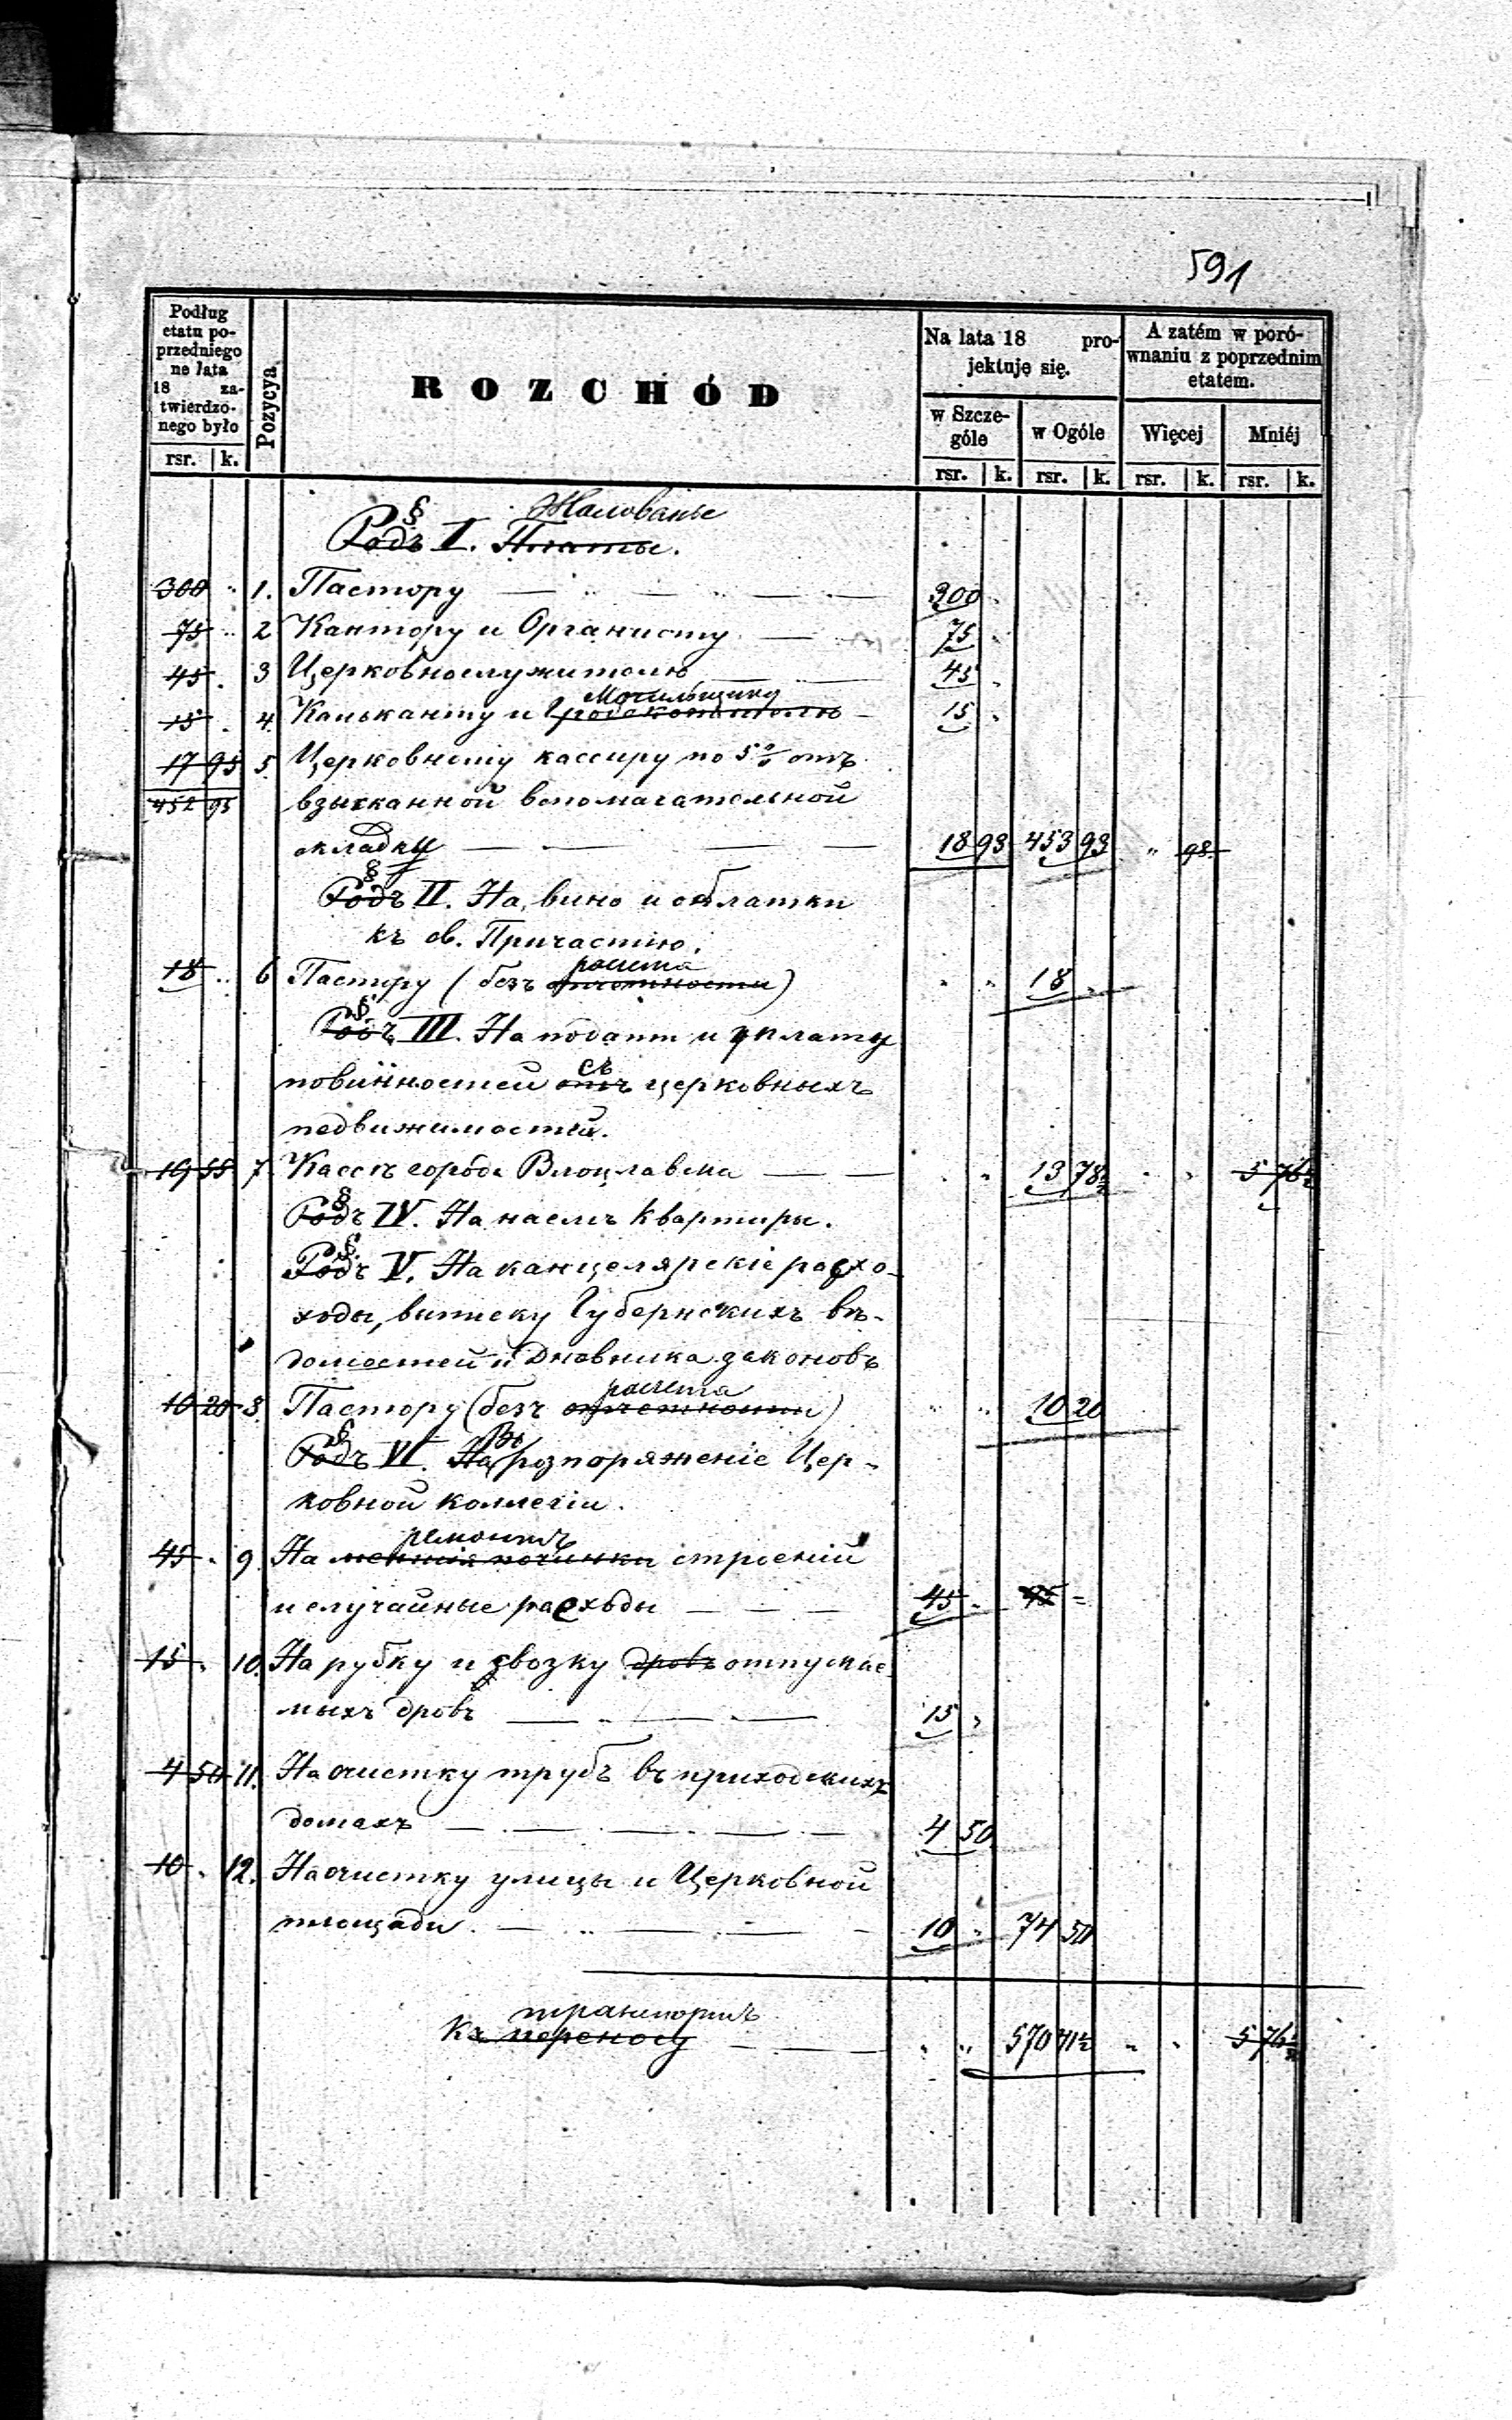 591
Podług etatu poprzedniego na lata 18 zatwierdzonego było
rsr. k.
Pozycya
ROZCHÓD
Na lata 18 projektuję się.
w Szczególe
w Ogóle
rsr. k. rsr. k.
A zatém w porównaniu z poprzednim etatem.
Więcej
Mniéj
rsr. k. rsr. k.
§ Жалованье
Родъ I. Платы.
300 " 1. Пастору 300 "
75 " 2 Кантору и Органисту 75 "
45 " 3 Церковнослужителю 45 "
Могильщику
15 " 4. Кальканту и Гробокопателю 15 "
17 95 5. Церковному кассиру по 5% отъ
452 95 взысканной вспомагательной
складки 18 93 453 93 " 98
§
Родъ II. На вино и облатки
къ св. Причастію.
расчета
18 " 6 Пастору (безъ отчетности) " " 18 "
§
Родъ III. На подати и уплату
съ
повинностей отъ церковныхъ
недвижимостей.
19 55 7. Кассѣ города Влоцлавска " " 13 78½ " " 5 76½
§
Родъ IV. На наемъ квартиры.
§
Родъ V. На канцелярскіе расхо-
ходы, выписку Губернскихъ вѣ-
домостей и Дневника законовъ
расчета
10 20 8. Пастору (безъ отчетности) " " 10 20
§ Въ
Родъ VI. На розпоряженіе Цер-
ковной коллегіи.
ремонтъ
45 " 9. На мелкія починки строеній
и случайные расходы 45 " 45 =
15 " 10. На рубку и звозку дровъ отпускае
мыхъ дровъ 15 "
4 50 11. На очистку трубъ въ приходскихъ
домахъ 4 50
10 " 12. На очистку улицы и Церковной
площади. 10 " 74 50
транспортъ
Къ переносу " " 570 41½ " " 5 76½